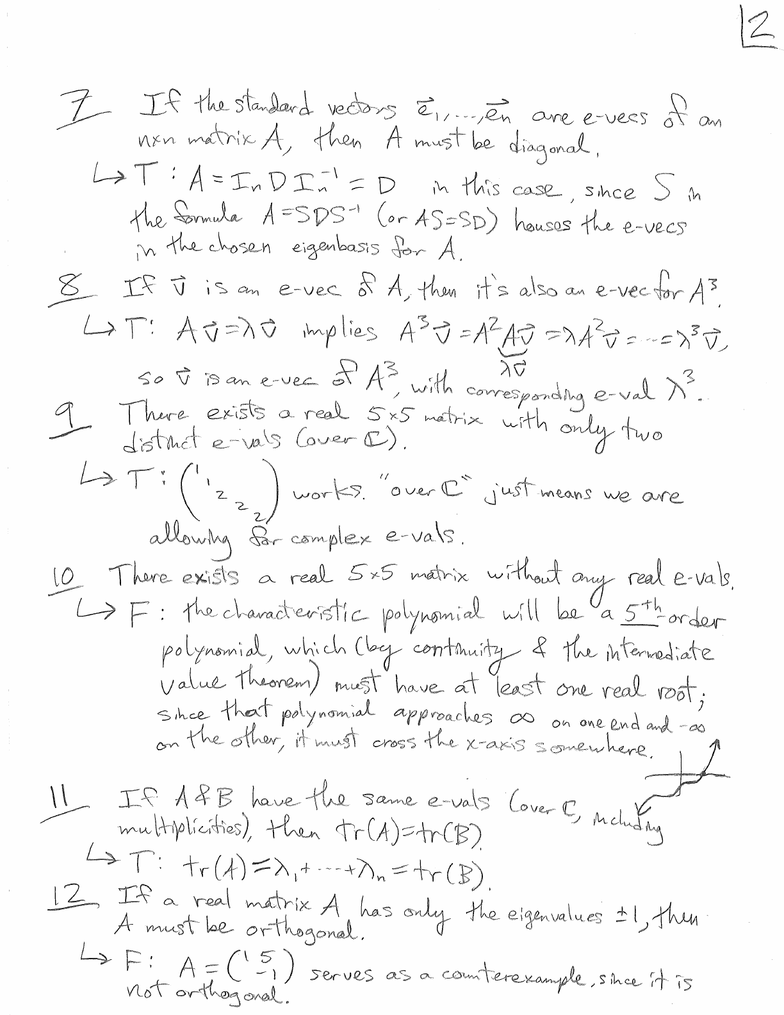 2
7 If the standard vectors e⃗₁,...,e⃗n are e-vecs of an
n×n matrix A, then A must be diagonal.
↳ T: A = In D In⁻¹ = D in this case, since S in
the formula A=SDS⁻¹ (or AS=SD) houses the e-vecs
in the chosen eigenbasis for A.
8 If v⃗ is an e-vec of A, then it's also an e-vec for A³.
↳ T: Av⃗=λv⃗ implies A³v⃗ = A²Av⃗ = λA²v⃗ = ... = λ³v⃗,
λv⃗
so v⃗ is an e-vec of A³, with corresponding e-val λ³.
9 There exists a real 5×5 matrix with only two
distinct e-vals (over ℂ).
↳ T: (1 1 2 2 2) works. "over ℂ" just means we are
allowing for complex e-vals.
10 There exists a real 5×5 matrix without any real e-vals.
↳ F: the characteristic polynomial will be a 5th-order
polynomial, which (by continuity & the intermediate
value theorem) must have at least one real root;
since that polynomial approaches ∞ on one end and -∞
on the other, it must cross the x-axis somewhere.
11 If A & B have the same e-vals (over ℂ, including
multiplicities), then tr(A)=tr(B).
↳ T: tr(A)=λ₁+...+λn=tr(B).
12 If a real matrix A has only the eigenvalues ±1, then
A must be orthogonal.
↳ F: A = (1 5 -1) serves as a counterexample, since it is
not orthogonal.